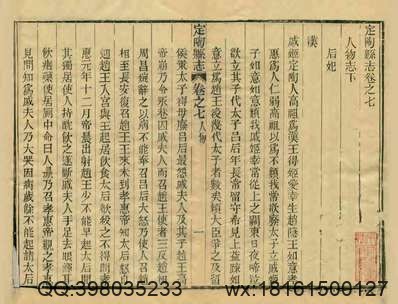 定陶縣志卷之七
人物志下
后妃
漢
戚姬定陶人高祖為漢王得姬愛幸生趙隱王如意孝
惠為人仁弱高祖以為不類我常欲廢太子立戚姬
子如意如意類我戚姬幸常從上之關東日夜啼泣
欲立其子代太子呂后年長常留守希見上益疎如
意立為趙王後幾代太子者數矣賴大臣爭之及留
定陶縣志 卷之七 人物 一
侯策太子得毋廢呂后最怨戚夫人及其子趙王高
帝崩乃令永巷囚戚夫人而召趙王使者三反趙相
周昌辭之以病不能奉召呂后大怒乃使人召趙
相至長安復召趙王王來未到孝惠帝知太后怒自
迎趙王入宮與王起居飲食太后欲殺之不得間孝
惠元年十二月帝晨出射趙王少不能早起太后聞
其獨居使人持酖飲之遂斷戚夫人手足去眼煇耳
飲瘖藥使居廁中命曰人彘乃召孝惠帝觀之孝惠
見問知為戚夫人乃大哭因病歲餘不能起請太后
QQ:398035233 wx:18161500127